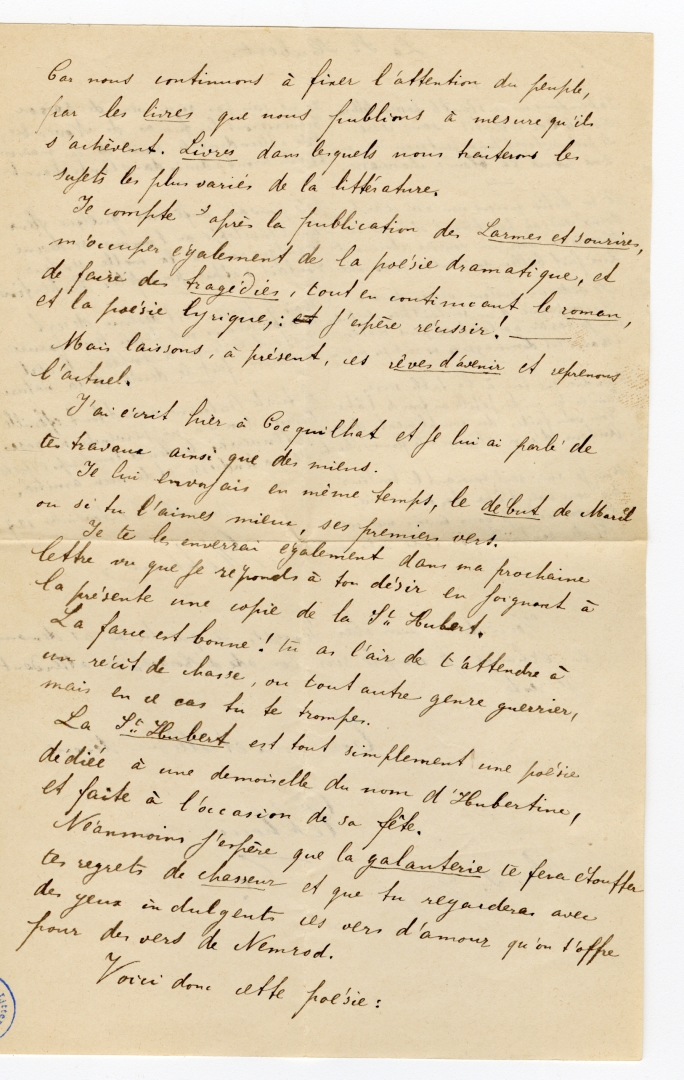 Car nous continuons à fixer l'attention du peuple,
par les livres que nous publions à mesure qu'ils
s'achèvent. Livres dans lesquels nous traiterons les
sujets les plus variés de la littérature.
Je compte, après la publication des Larmes et sourires,
m'occuper également de la poésie dramatique, et
de faire des tragédies, tout en continuant le roman,
et la poésie lyrique,: et j'espère réussir! —
Mais laissons, à présent, ces rêves d'avenir et reprenons
l'actuel.
J'ai écrit hier à Cocquilhat et je lui ai parlé de
tes travaux ainsi que des miens.
Je lui envoyais en même temps, le début de
ou si tu l'aimes mieux, ses premiers vers.
Je te les enverrai également dans ma prochaine
lettre vu que je réponds à ton désir en joignant à
la présente une copie de la St Hubert.
La farce est bonne! tu as l'air de t'attendre à
un récit de chasse, ou tout autre genre guerrier,
mais en ce cas tu te trompes.
La St Hubert est tout simplement une poésie
dédiée à une demoiselle du nom d'Hubertine,
et faite à l'occasion de sa fête.
Néanmoins j'espère que la galanterie te fera étouffer
tes regrets de chasseur et que tu regarderas avec
des yeux indulgents ces vers d'amour qu'on t'offre
pour des vers de Nemrod.
Voici donc cette poésie: